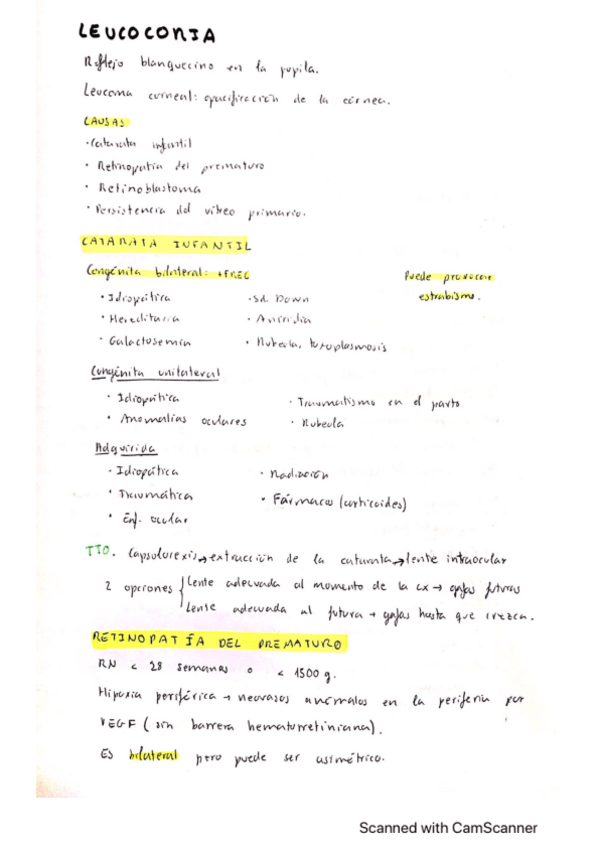 LEUCOCORIA
Reflejo blanquecino en la pupila.
Leucoma corneal: opacificación de la córnea.
CAUSAS
· Catarata infantil
· Retinopatía del prematuro
· Retinoblastoma
· Persistencia del vítreo primario.
CATARATA INFANTIL
Congénita bilateral: +FREC
Puede provocar
estrabismo.
· Idiopática · Sd. Down
· Hereditaria · Aniridia
· Galactosemia · Rubeola, toxoplasmosis
Congénita unilateral
· Idiopática · Traumatismo en el parto
· Anomalías oculares · Rubeola
Adquirida
· Idiopática · Radiación
· Traumática · Fármacos (corticoides)
· Enf. ocular
TTO. Capsulorexis→extracción de la catarata→lente intraocular
2 opciones { lente adecuada al momento de la cx → gafas futuras
lente adecuada al futura → gafas hasta que crezca.
RETINOPATÍA DEL PREMATURO
RN < 28 semanas o < 1500 g.
Hipoxia periférica → neovasos anómalos en la periferia por
VEGF (sin barrera hematorretiniana).
Es bilateral pero puede ser asimétrico.
Scanned with CamScanner